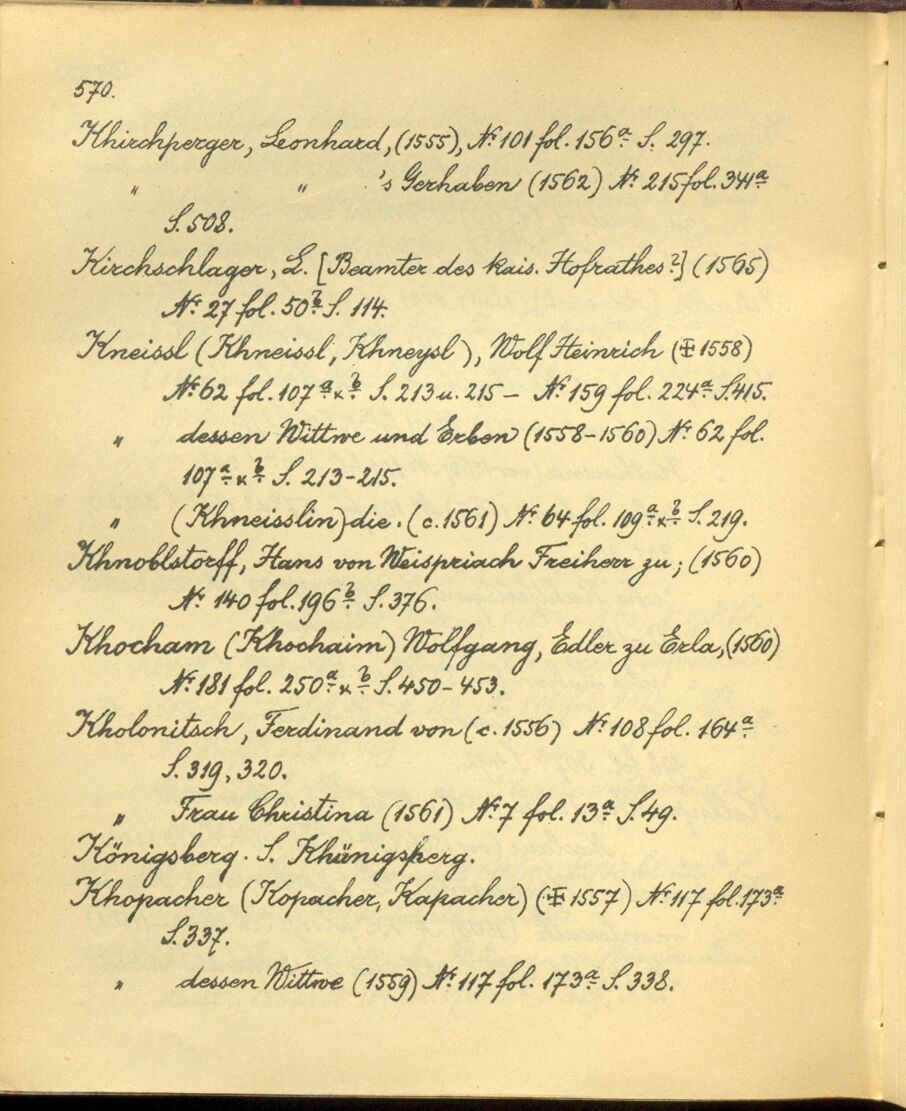 570.
Khirchperger, Leonhard, (1555), Nr. 101 fol. 156a S. 297.
" " 's Gerhaben (1562) Nr. 215 fol. 341a
S. 508.
Kirchschlager, L. [Beamter des kais. Hofrathes?] (1565)
Nr. 27 fol. 50b S. 114.
Kneissl (Khneissl, Khneysl), Wolf Heinrich (✠ 1558)
Nr. 62 fol. 107a & b S. 213 u. 215 – Nr. 159 fol. 224a S. 415.
" dessen Wittwe und Erben (1558–1560) Nr. 62 fol.
107a & b S. 213–215.
" (Khneisslin) die. (c. 1561) Nr. 64 fol. 109a & b S. 219.
Khnoblstorff, Hans von Weispriach Freiherr zu; (1560)
Nr. 140 fol. 196b S. 376.
Khocham (Khochaim) Wolfgang, Edler zu Erla, (1560)
Nr. 181 fol. 250a & b S. 450–453.
Kholonitsch, Ferdinand von (c. 1556) Nr. 108 fol. 164a
S. 319, 320.
" Frau Christina (1561) Nr. 7 fol. 13a S. 49.
Königsberg. S. Khünigsperg.
Khopacher (Kopacher, Kapacher) (✠ 1557) Nr. 117 fol. 173a
S. 337.
" dessen Wittwe (1559) Nr. 117 fol. 173a S. 338.